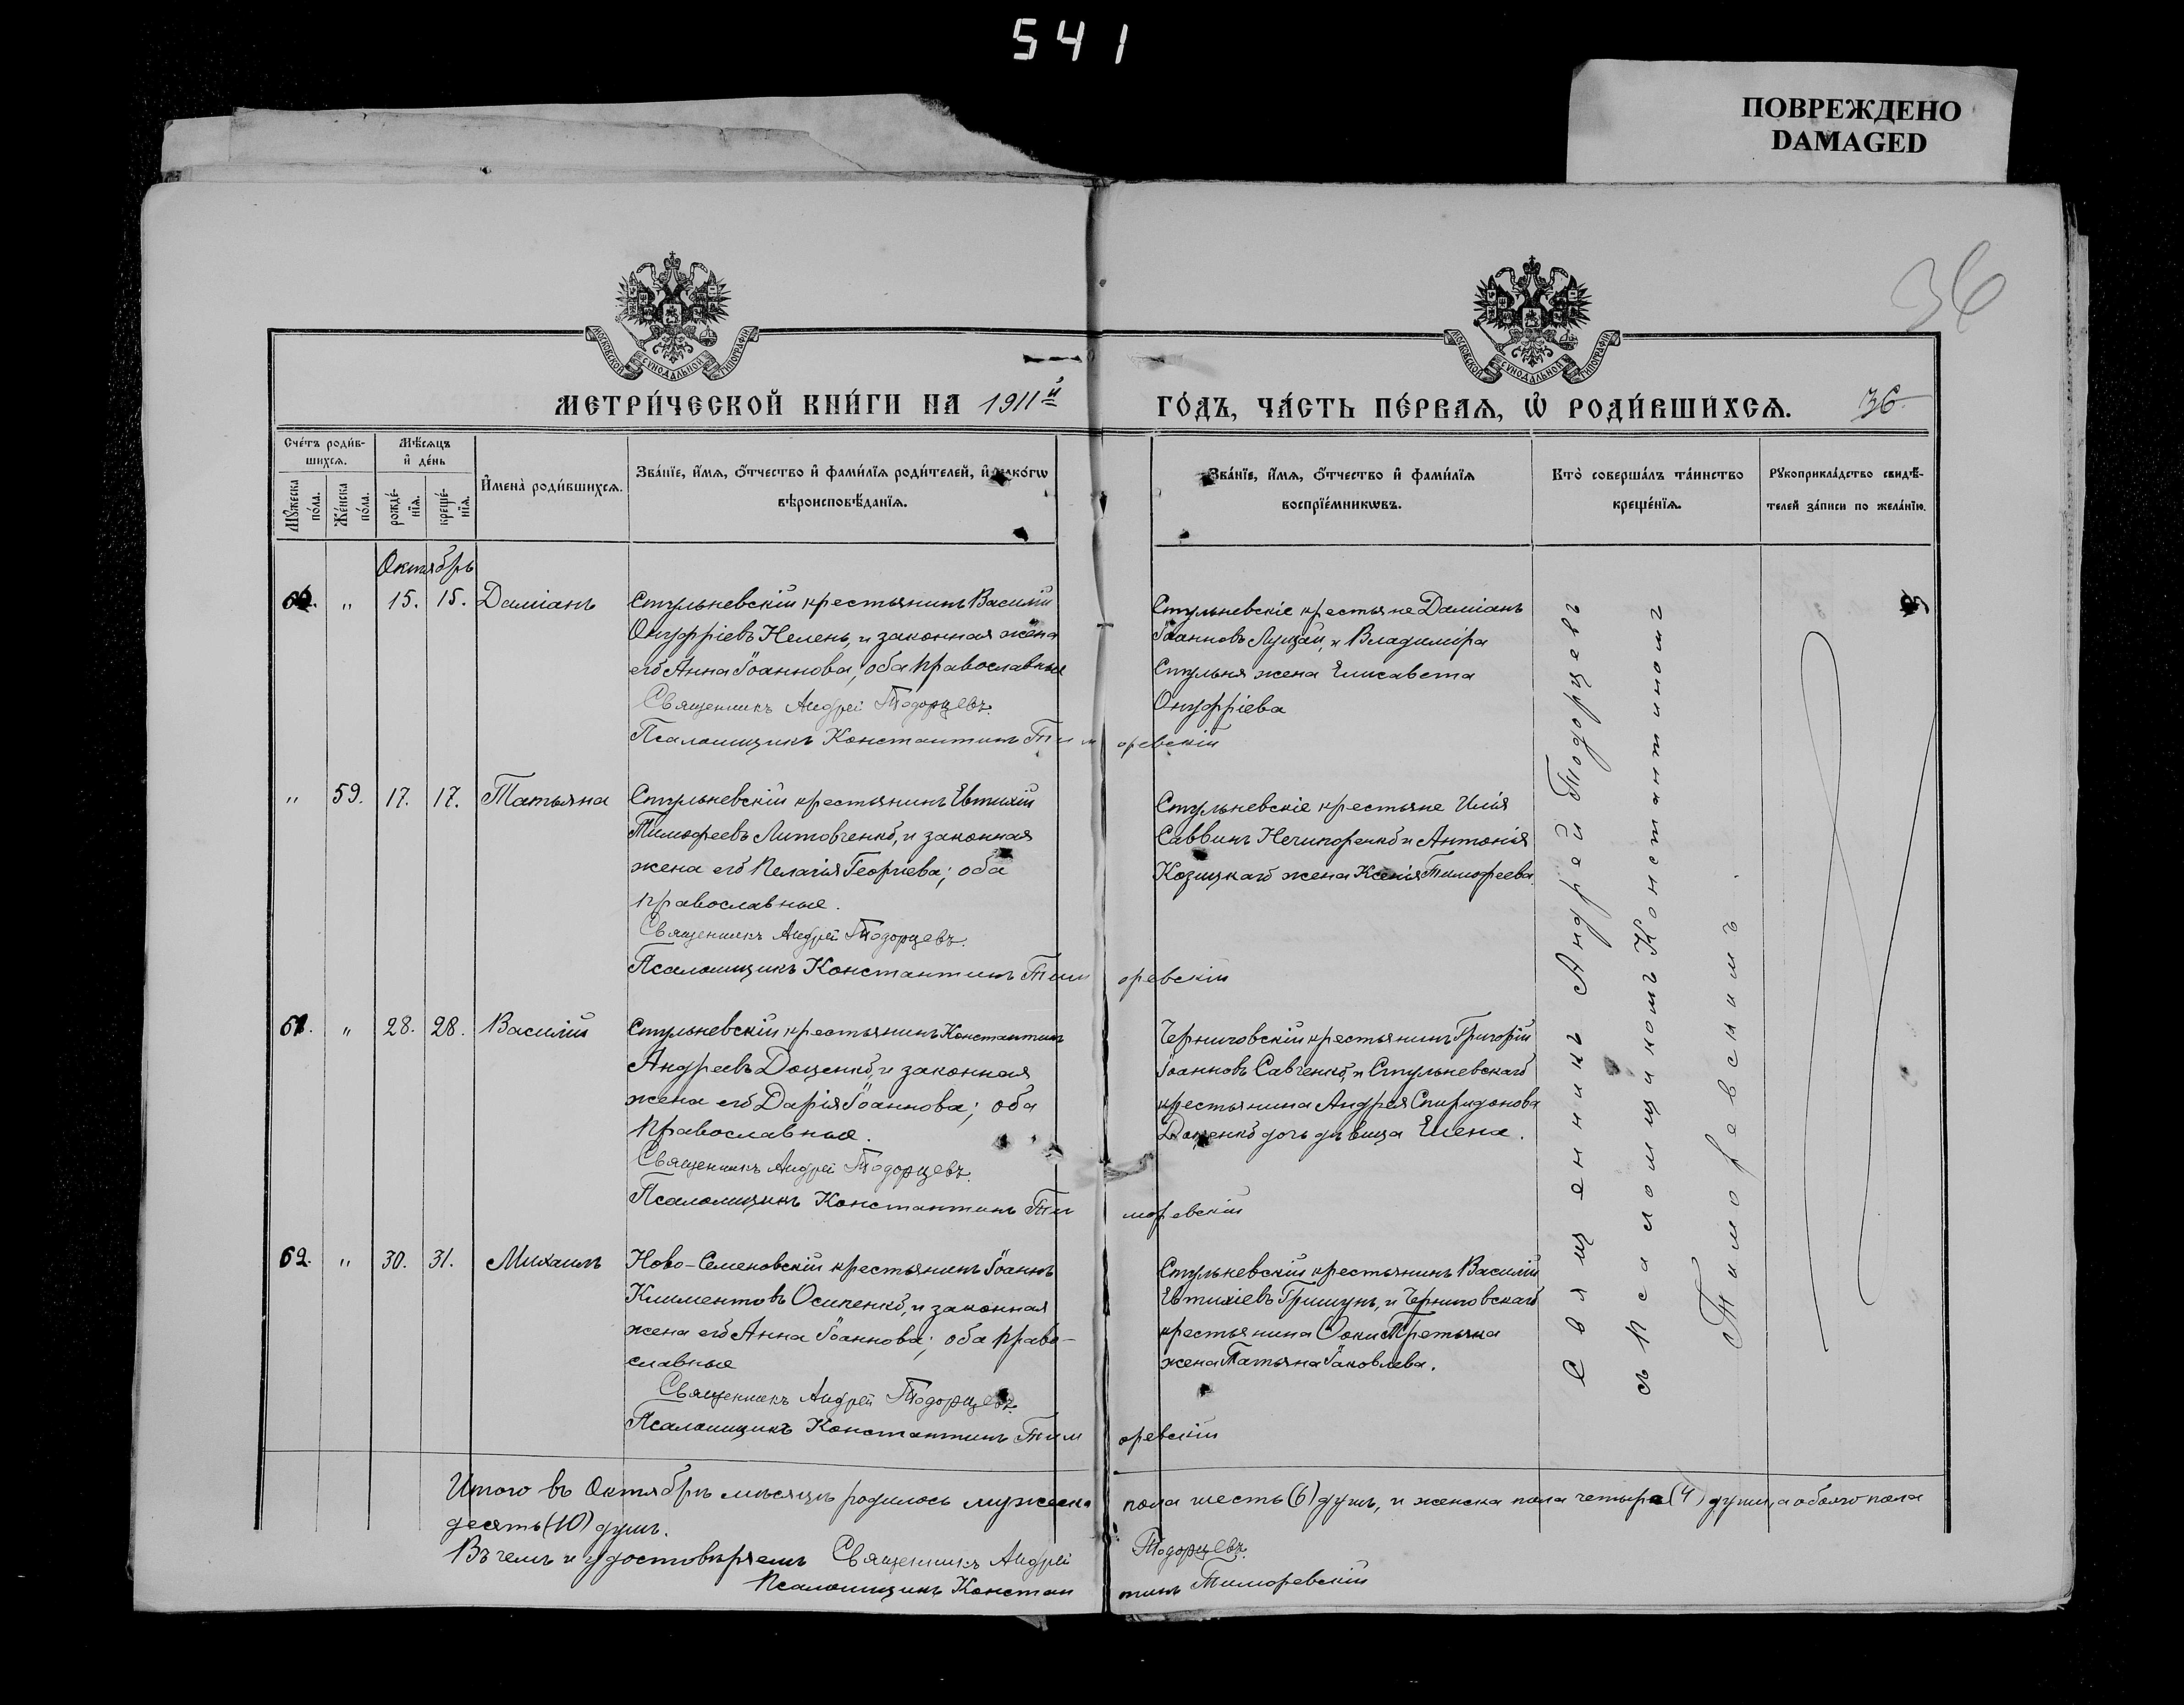 541
ПОВРЕЖДЕНО
DAMAGED
36
МОСКОВСКОЙ СѴНОДАЛЬНОЙ ТИПОГРАФІИ
МОСКОВСКОЙ СѴНОДАЛЬНОЙ ТИПОГРАФІИ
МЕТРИ́ЧЕСКОЙ КНИ́ГИ НА 1911й ГО́ДЪ, ЧА́СТЬ ПЕ́РВАѦ, Ѡ҆ РОДИ́ВШИХСѦ. 36.
Сче́тъ роди́в-
шихсѧ.
Мѣ́сѧцъ
и҆ де́нь
Мꙋ́жеска
по́ла.
Же́нска
по́ла.
рожде́-
нїѧ.
креще́-
нїѧ.
И҆мена̀ роди́вшихсѧ.
Зва́нїе, и҆́мѧ, ѻ҆́тчество и҆ фами́лїѧ роди́телей, и҆ како́гѡ
вѣроисповѣ́данїѧ.
Зва́нїе, и҆́мѧ, ѻ҆́тчество и҆ фами́лїѧ
воспрїе́мникѡвъ.
Кто̀ соверша́лъ та́инство
креще́нїѧ.
Рꙋкоприкла́дство свидѣ́-
телей за́писи по жела́нїю.
Октябрь
60. " 15. 15. Даміанъ
Стульневскій крестьянинъ Василій
Онуфріевъ Нелень, и законная жена
его Анна Іоаннова, оба православные
Священникъ Андрей Тодорцевъ.
Псаломщикъ Константинъ Тиморевскій
Стульневскіе крестьяне Даміанъ
Іоанновъ Луцай, и Владиміра
Стульня жена Елисавета
Онуфріева
" 59. 17. 17. Татьяна
Стульневскій крестьянинъ Евтихій
Тимофеевъ Литовченко, и законная
жена его Пелагія Георгіева; оба
православные.
Священникъ Андрей Тодорцевъ.
Псаломщикъ Константинъ Тиморевскій
Стульневскіе крестьяне Илія
Саввинъ Нечипоренко и Антонія
Козицкаго жена Ксенія Тимофеева.
61. " 28. 28. Василій
Стульневскій крестьянинъ Константинъ
Андреевъ Доценко, и законная
жена его Дарія Іоаннова; оба
православные.
Священникъ Андрей Тодорцевъ.
Псаломщикъ Константинъ Тиморевскій
Черниговскій крестьянинъ Григорій
Іоанновъ Савченко, и Стульневскаго
крестьянина Андрея Спиридонова
Доценко дочь дѣвица Елена.
62. " 30. 31. Михаилъ
Ново-Семеновскій крестьянинъ Іоаннъ
Климентовъ Осипенко, и законная
жена его Анна Іоаннова; оба право-
славные
Священникъ Андрей Тодорцевъ.
Псаломщикъ Константинъ Тиморевскій
Стульневскій крестьянинъ Василій
Евтихіевъ Гришунъ, и Черниговскаго
крестьянина Третьяка
жена Татьяна Іаковлева.
Священникъ Андрей Тодорцевъ
съ Псаломщикомъ Константиномъ
Тиморевскимъ.
Итого въ Октябрѣ мѣсяцѣ родилось мужеска пола шесть (6) душъ, и женска пола четыре (4) души, а обоего пола
десять (10) душъ.
Въ чемъ и удостовѣряемъ Священникъ Андрей Тодорцевъ.
Псаломщикъ Константинъ Тиморевскій